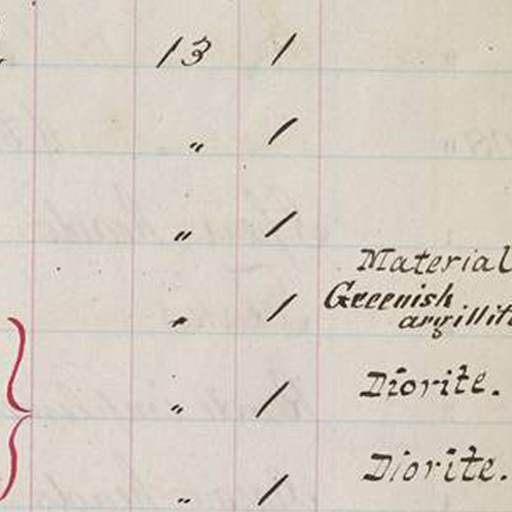 13 1
" 1
" 1
Material
" 1 Greenish
argillit
" 1 Diorite.
" 1 Diorite.